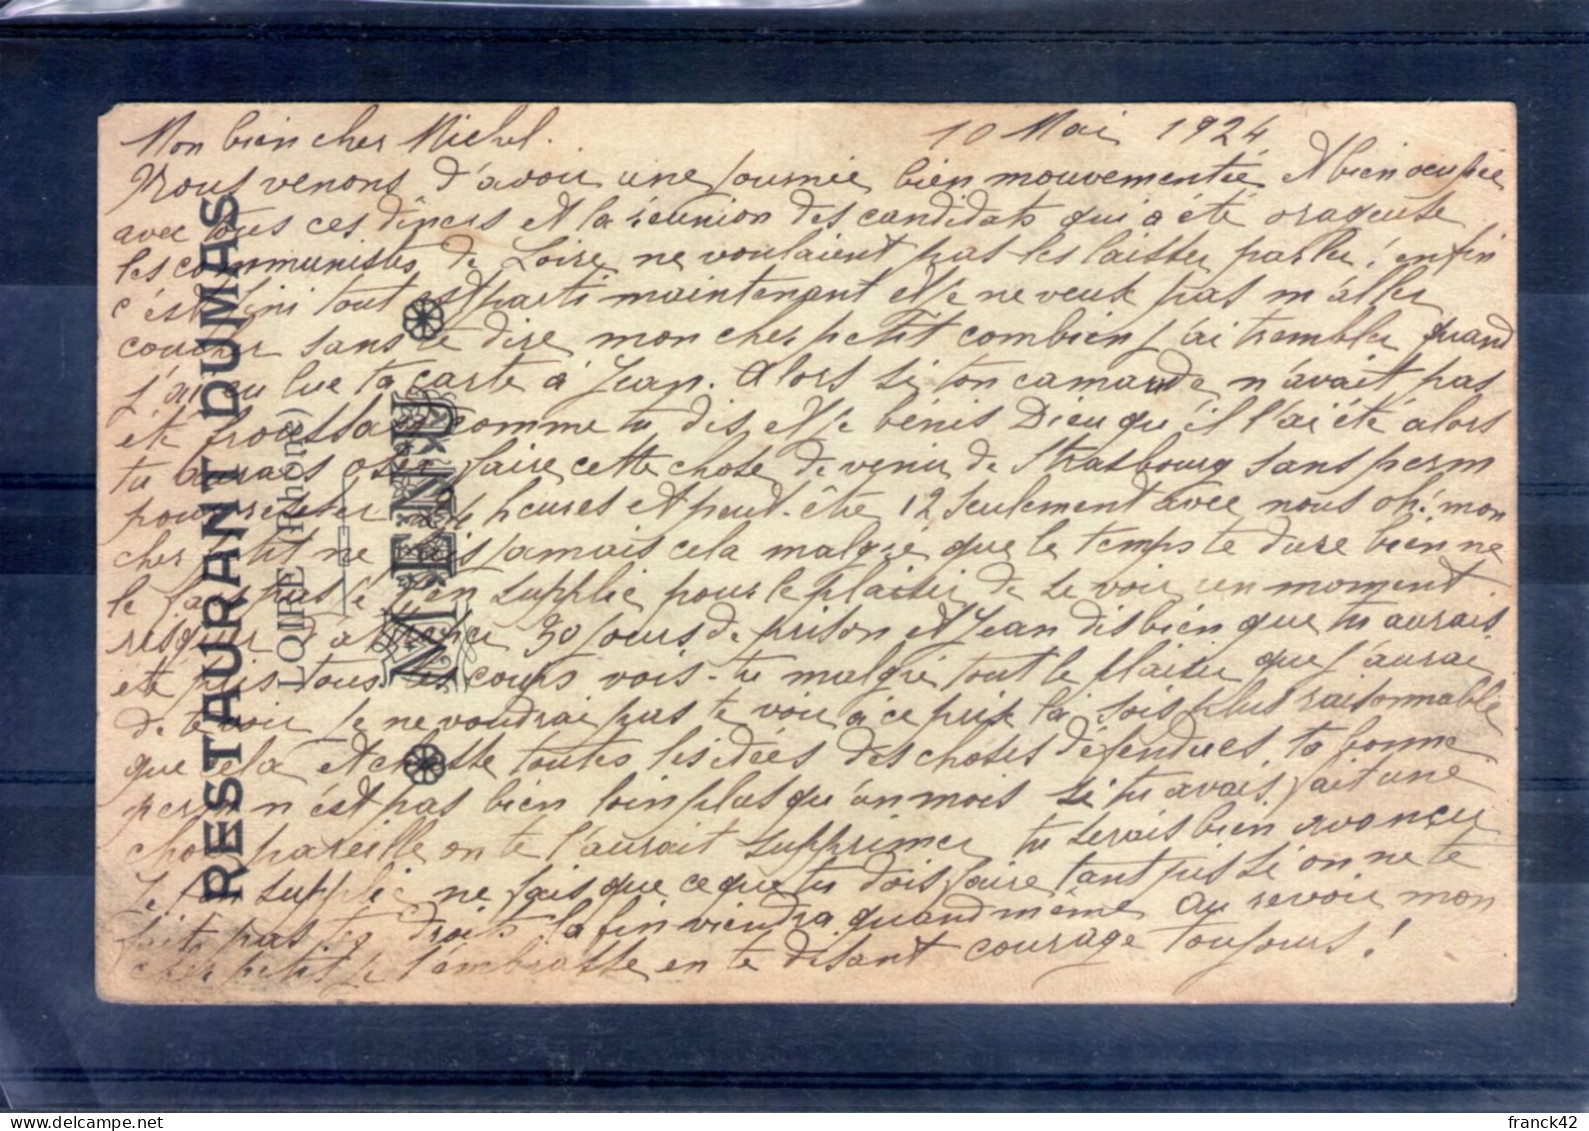 Mon bien cher Michel.
10 Mai 1924
Nous venons d'avoir une journée bien mouvementée et bien ocupée
avec tous ces dîners et la réunion des candidats qui a été orageuse
les communistes de Loire ne voulaient pas les laisser parler, enfin
c'est fini tout est parti maintenant et je ne veux pas m'aller
coucher sans te dire mon cher petit combien j'ai trembler quand
j'ai eu lue ta carte à Jean. Alors si ton camarade n'avait pas
été froussard comme tu dis et je bénis Dieu qu'il l'ai été alors
tu aurais oser faire cette chose de venir de Strasbourg sans perm
pour rester 24 heures et peut-être 12 seulement avec nous oh! mon
cher petit ne fais jamais cela malgré que le temps te dure bien ne
le fais pas je t'en supplie pour le plaisir de se voir un moment
risquer d'attraper 30 jours de prison et Jean dis bien que tu aurais
été pris tous les coups vois-tu malgré tout le plaisir que j'aurai
de te voir je ne voudrai pas te voir à ce prix là, sois plus raisonnable
que cela et chasse toutes les idées des choses défendues, ta bonne
perm n'est pas bien loin plus qu'un mois si tu avais fait une
chose pareille on te l'aurait supprimer tu serais bien avancer
Je t'en supplie ne fais que ce que tu dois faire tant pis si on ne te
fait pas tes droits la fin viendra quand même au revoir mon
cher petit je t'embrasse en te disant courage toujours!
RESTAURANT DUMAS
LOIRE (Rhône)
MENU
franck42